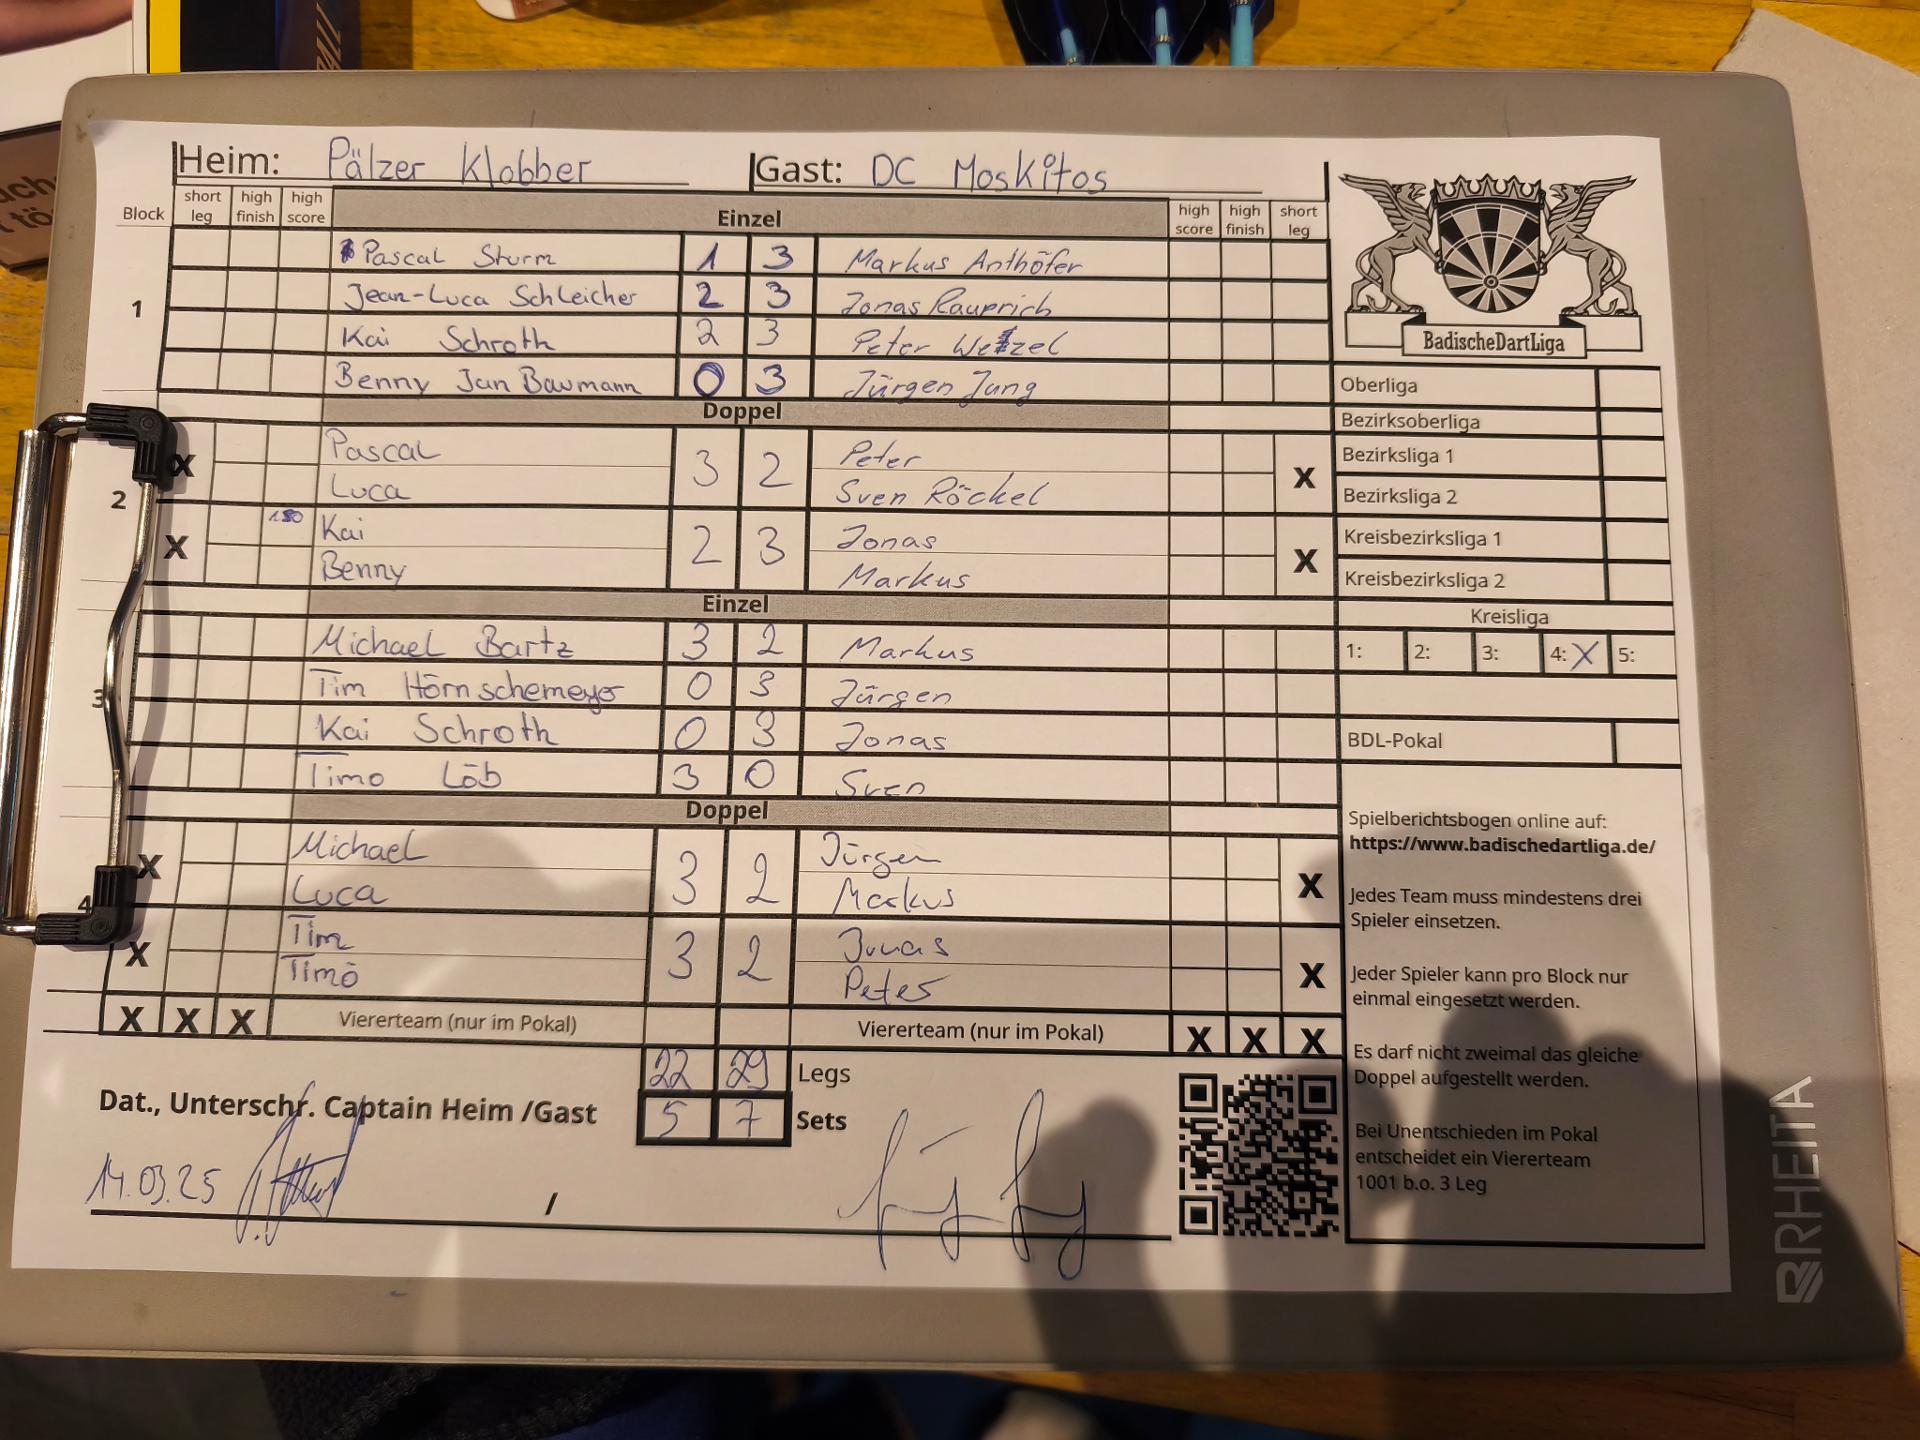 Heim: Pälzer Klobber Gast: DC Moskitos
Block short leg high finish high score Einzel high score high finish short leg
1
Pascal Sturm 1 3 Markus Anthöfer
Jean-Luca Schleicher 2 3 Jonas Rauprich
Kai Schroth 2 3 Peter Wetzel
Benny Jan Baumann 0 3 Jürgen Jung
Doppel
2
X Pascal 3 2 Peter X
Luca Sven Röckel
X 180 Kai 2 3 Jonas X
Benny Markus
Einzel
3
Michael Bartz 3 2 Markus
Tim Hörnschemeyer 0 3 Jürgen
Kai Schroth 0 3 Jonas
Timo Löb 3 0 Sven
Doppel
4
X Michael 3 2 Jürgen X
Luca Markus
X Tim 3 2 Jonas X
Timo Peter
X X X Viererteam (nur im Pokal) Viererteam (nur im Pokal) X X X
22 29 Legs
Dat., Unterschr. Captain Heim /Gast 5 7 Sets
14.03.25 /
BadischeDartLiga
Oberliga
Bezirksoberliga
Bezirksliga 1
Bezirksliga 2
Kreisbezirksliga 1
Kreisbezirksliga 2
Kreisliga
1: 2: 3: 4: X 5:
BDL-Pokal
Spielberichtsbogen online auf:
https://www.badischedartliga.de/
Jedes Team muss mindestens drei
Spieler einsetzen.
Jeder Spieler kann pro Block nur
einmal eingesetzt werden.
Es darf nicht zweimal das gleiche
Doppel aufgestellt werden.
Bei Unentschieden im Pokal
entscheidet ein Viererteam
1001 b.o. 3 Leg
RHEITA